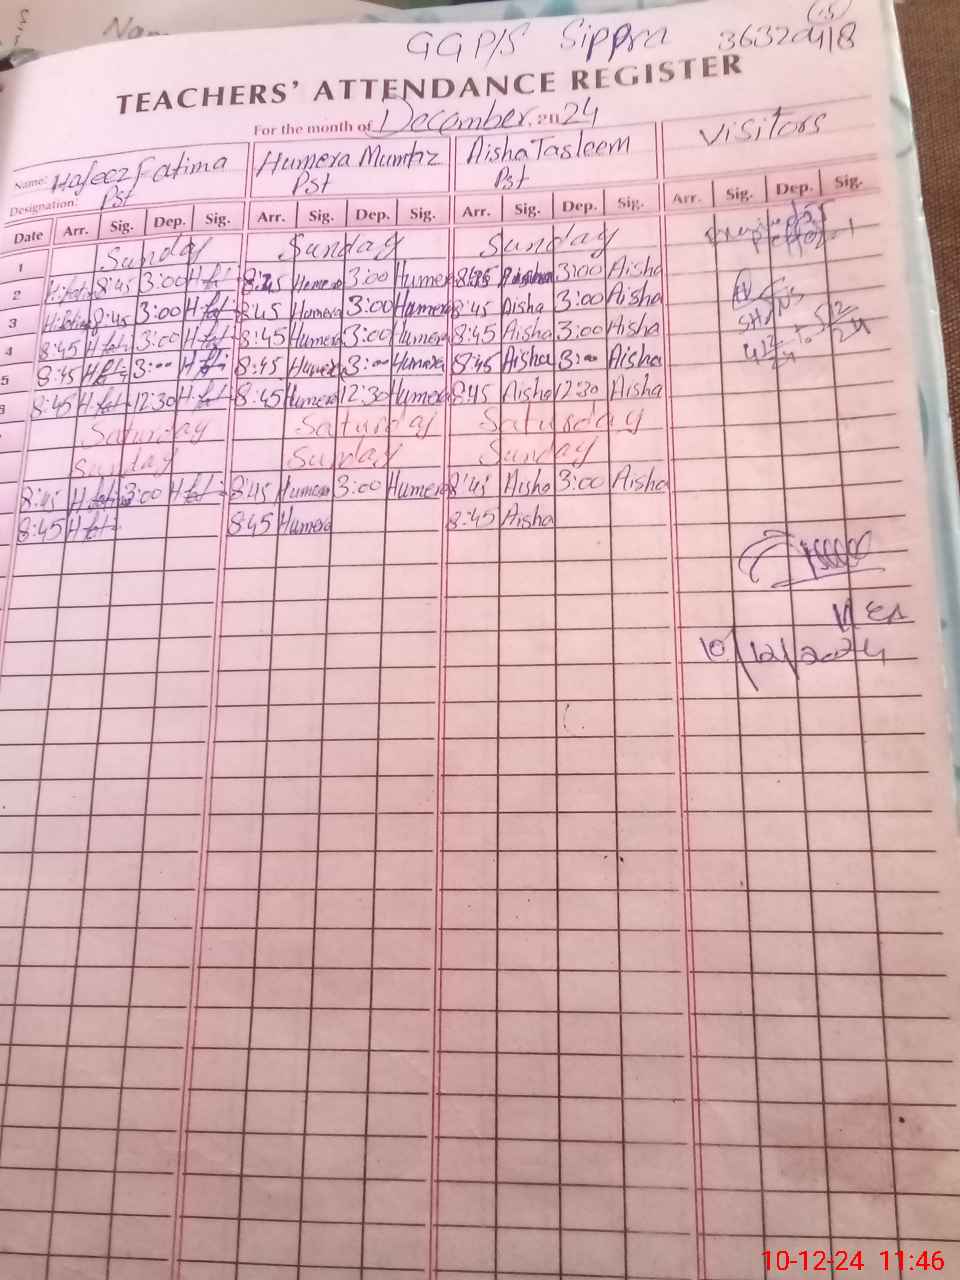 GGP/S Sippra
TEACHERS' ATTENDANCE REGISTER
For the month of December, 2024
Name: Hafeez Fatima Humera Mumtaz Aisha Tasleem Visitors
Designation: Pst Pst Pst
Date Arr. Sig. Dep. Sig. Arr. Sig. Dep. Sig. Arr. Sig. Dep. Sig. Arr. Sig. Dep. Sig.
1 Sunday Sunday Sunday
2 8:45 3:00 8:45 Humera 3:00 Humera 8:45 Aisha 3:00 Aisha
3 8:45 3:00 8:45 Humera 3:00 Humera 8:45 Aisha 3:00 Aisha
4 8:45 3:00 8:45 Humera 3:00 Humera 8:45 Aisha 3:00 Aisha
5 8:45 3:00 8:45 Humera 3:00 Humera 8:45 Aisha 3:00 Aisha
8:45 12:30 8:45 Humera 12:30 Humera 8:45 Aisha 12:30 Aisha
Saturday Saturday Saturday
Sunday Sunday Sunday
8:45 3:00 8:45 Humera 3:00 Humera 8:45 Aisha 3:00 Aisha
8:45 8:45 Humera 8:45 Aisha
10/12/2024
10-12-24 11:46